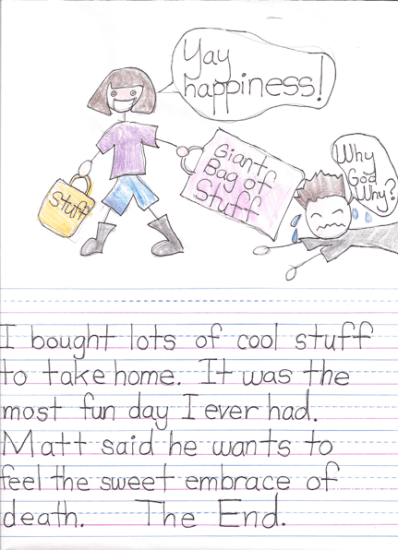 Yay
happiness!
Stuff
Giant
Bag of
Stuff
Why
God
Why?
I bought lots of cool stuff
to take home. It was the
most fun day I ever had.
Matt said he wants to
feel the sweet embrace of
death. The End.